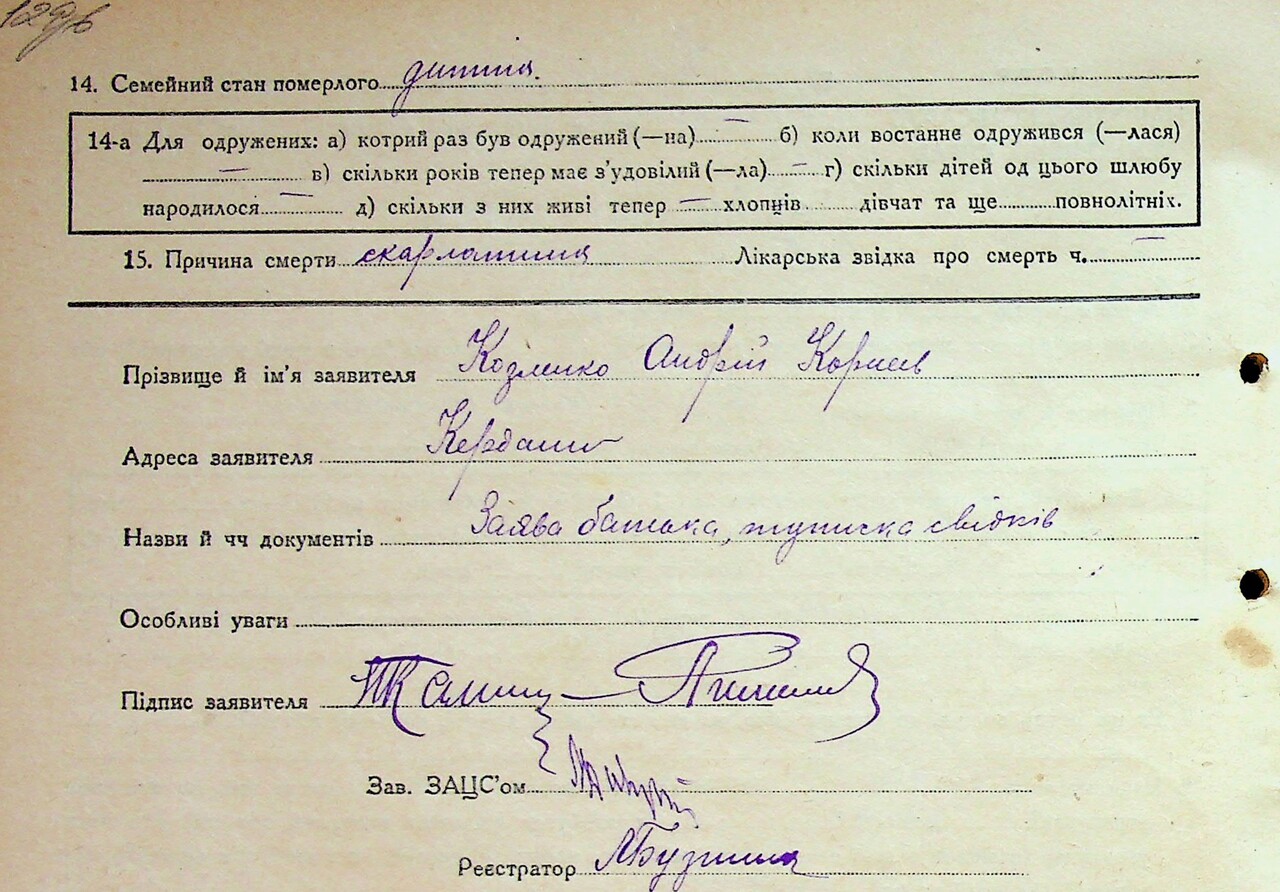 129б
14. Семейний стан померлого дитина.
14-а Для одружених: а) котрий раз був одружений (—на) — б) коли востаннє одружився (—лася)
— в) скільки років тепер має з'удовілий (—ла) — г) скільки дітей од цього шлюбу
народилося — д) скільки з них живі тепер — хлопців дівчат та ще повнолітніх.
15. Причина смерти скарлатина Лікарська звідка про смерть ч. —
Прізвище й ім'я заявителя Козленко Андрій Корнеєв
Адреса заявителя
Назви й чч документів Заява батька, підписка свідків
Особливі уваги
Підпис заявителя
Зав. ЗАЦС'ом
Реєстратор